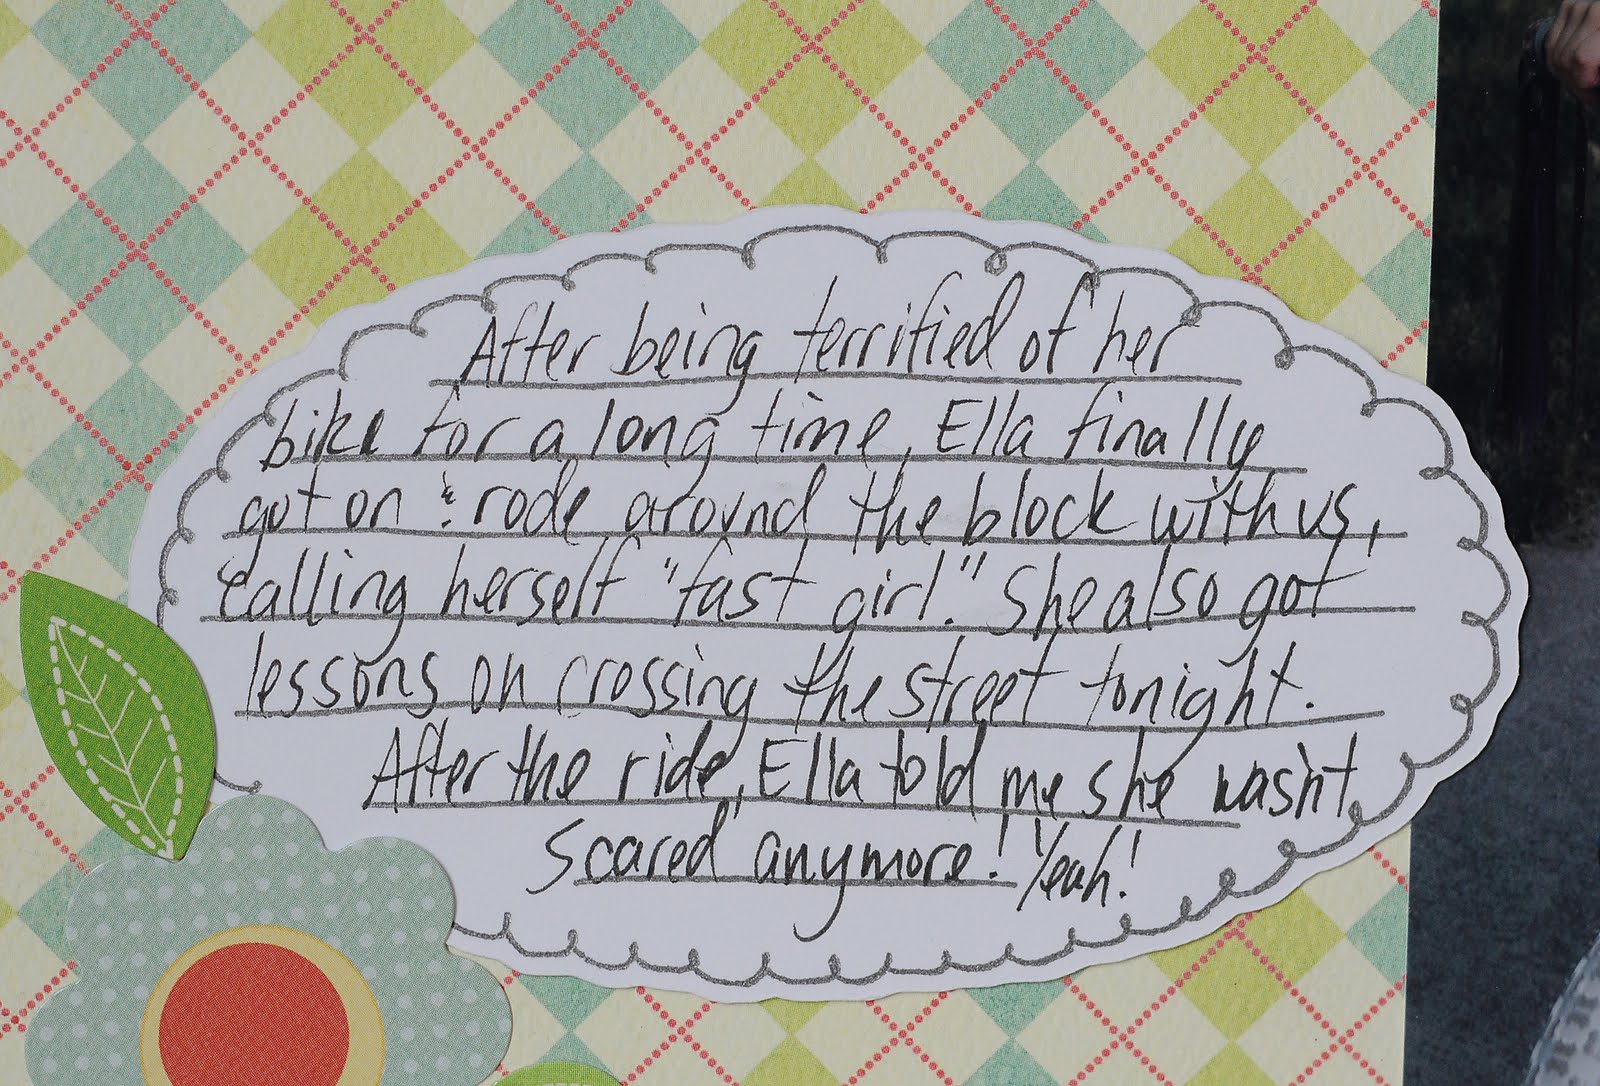 After being terrified of her
bike for a long time, Ella finally
got on & rode around the block with us,
calling herself "fast girl." She also got
lessons on crossing the street tonight.
After the ride, Ella told me she wasn't
scared anymore! Yeah!